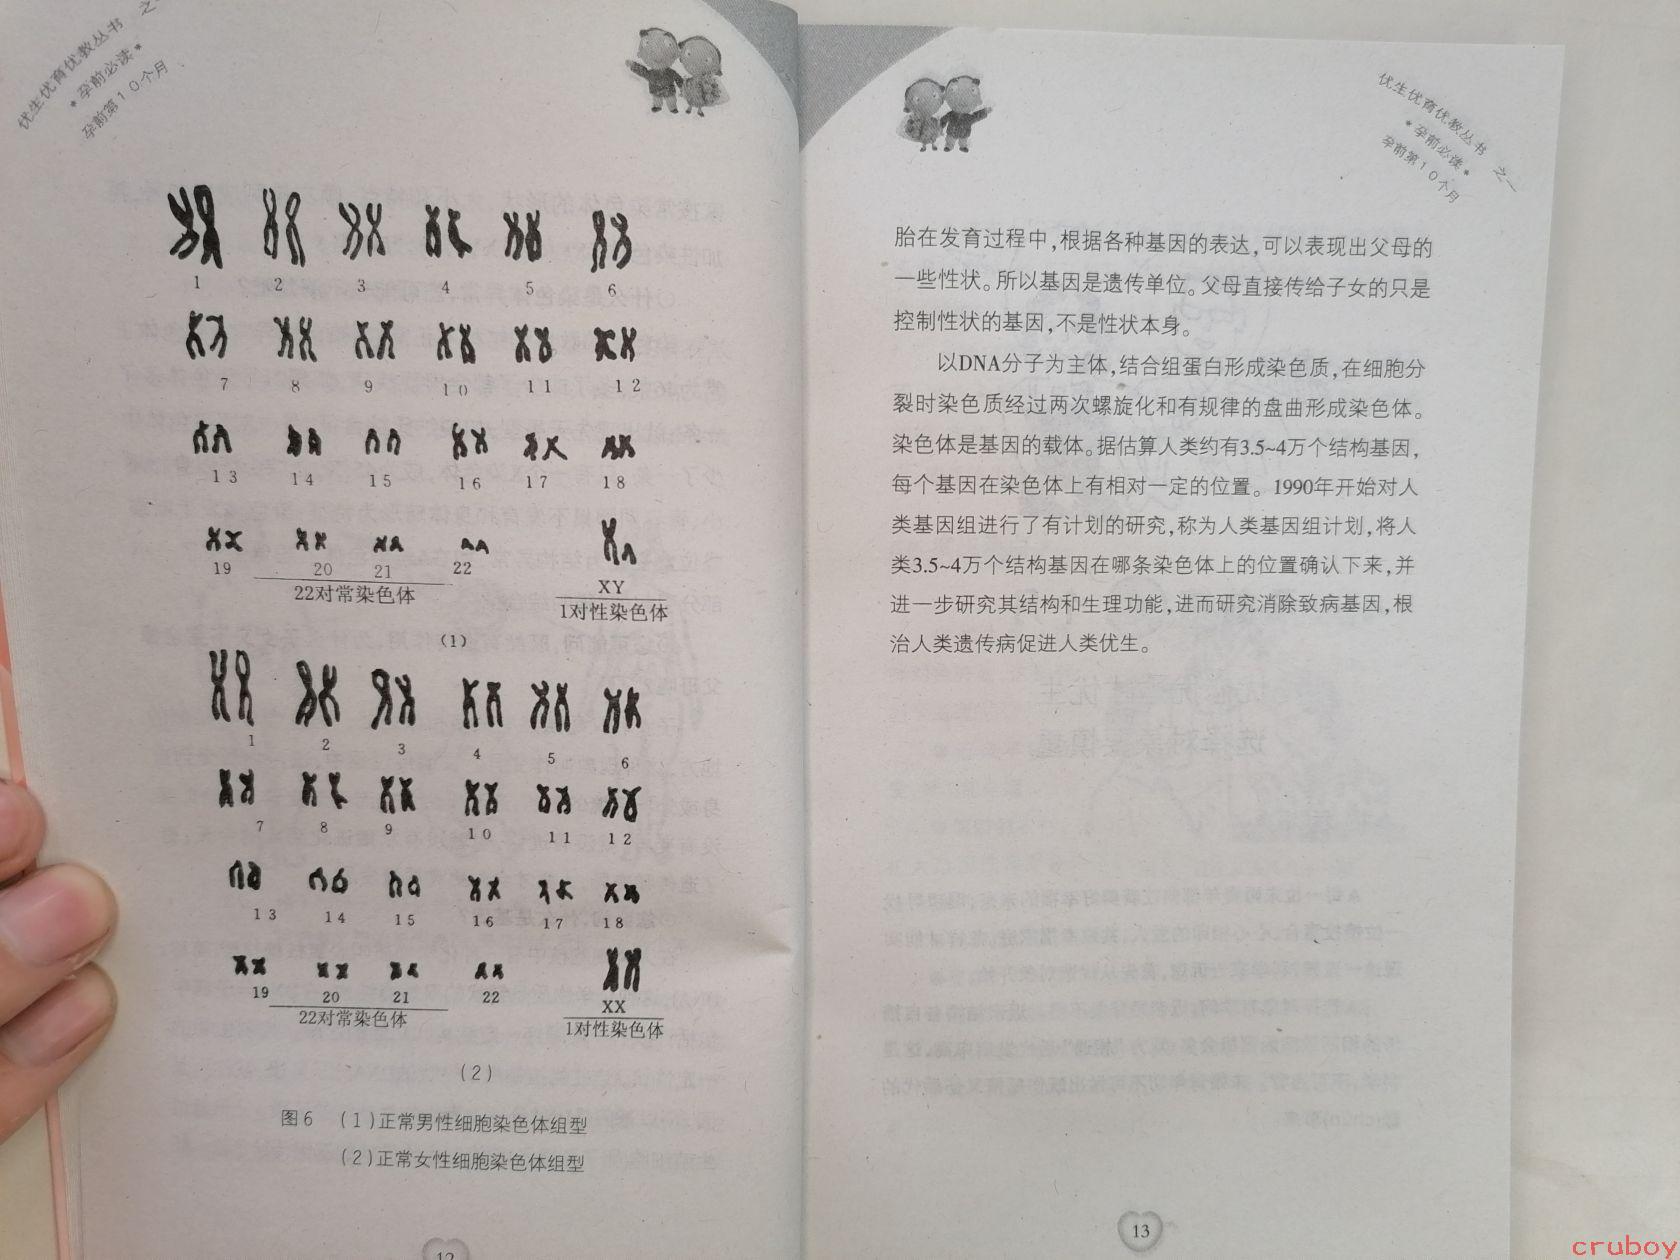 优生优育优教丛书 之一
*孕前必读*
孕前第10个月
1 2 3 4 5 6
7 8 9 10 11 12
13 14 15 16 17 18
19 20 21 22 XY
22对常染色体 1对性染色体
(1)
1 2 3 4 5 6
7 8 9 10 11 12
13 14 15 16 17 18
19 20 21 22 XX
22对常染色体 1对性染色体
(2)
图6 (1)正常男性细胞染色体组型
(2)正常女性细胞染色体组型
12
优生优育优教丛书 之一
*孕前必读*
孕前第10个月
胎在发育过程中,根据各种基因的表达,可以表现出父母的
一些性状。所以基因是遗传单位。父母直接传给子女的只是
控制性状的基因,不是性状本身。
以DNA分子为主体,结合组蛋白形成染色质,在细胞分
裂时染色质经过两次螺旋化和有规律的盘曲形成染色体。
染色体是基因的载体。据估算人类约有3.5~4万个结构基因,
每个基因在染色体上有相对一定的位置。1990年开始对人
类基因组进行了有计划的研究,称为人类基因组计划,将人
类3.5~4万个结构基因在哪条染色体上的位置确认下来,并
进一步研究其结构和生理功能,进而研究消除致病基因,根
治人类遗传病促进人类优生。
13
cruboy